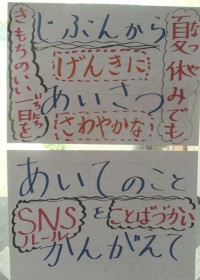 夏休みでも
なつやす
じぶんから
げんきに
あいさつ
さわやかな
きもちのいい一日を
いちにち
あいてのこと
SNSルール
を
ことばづかい
かんがえて